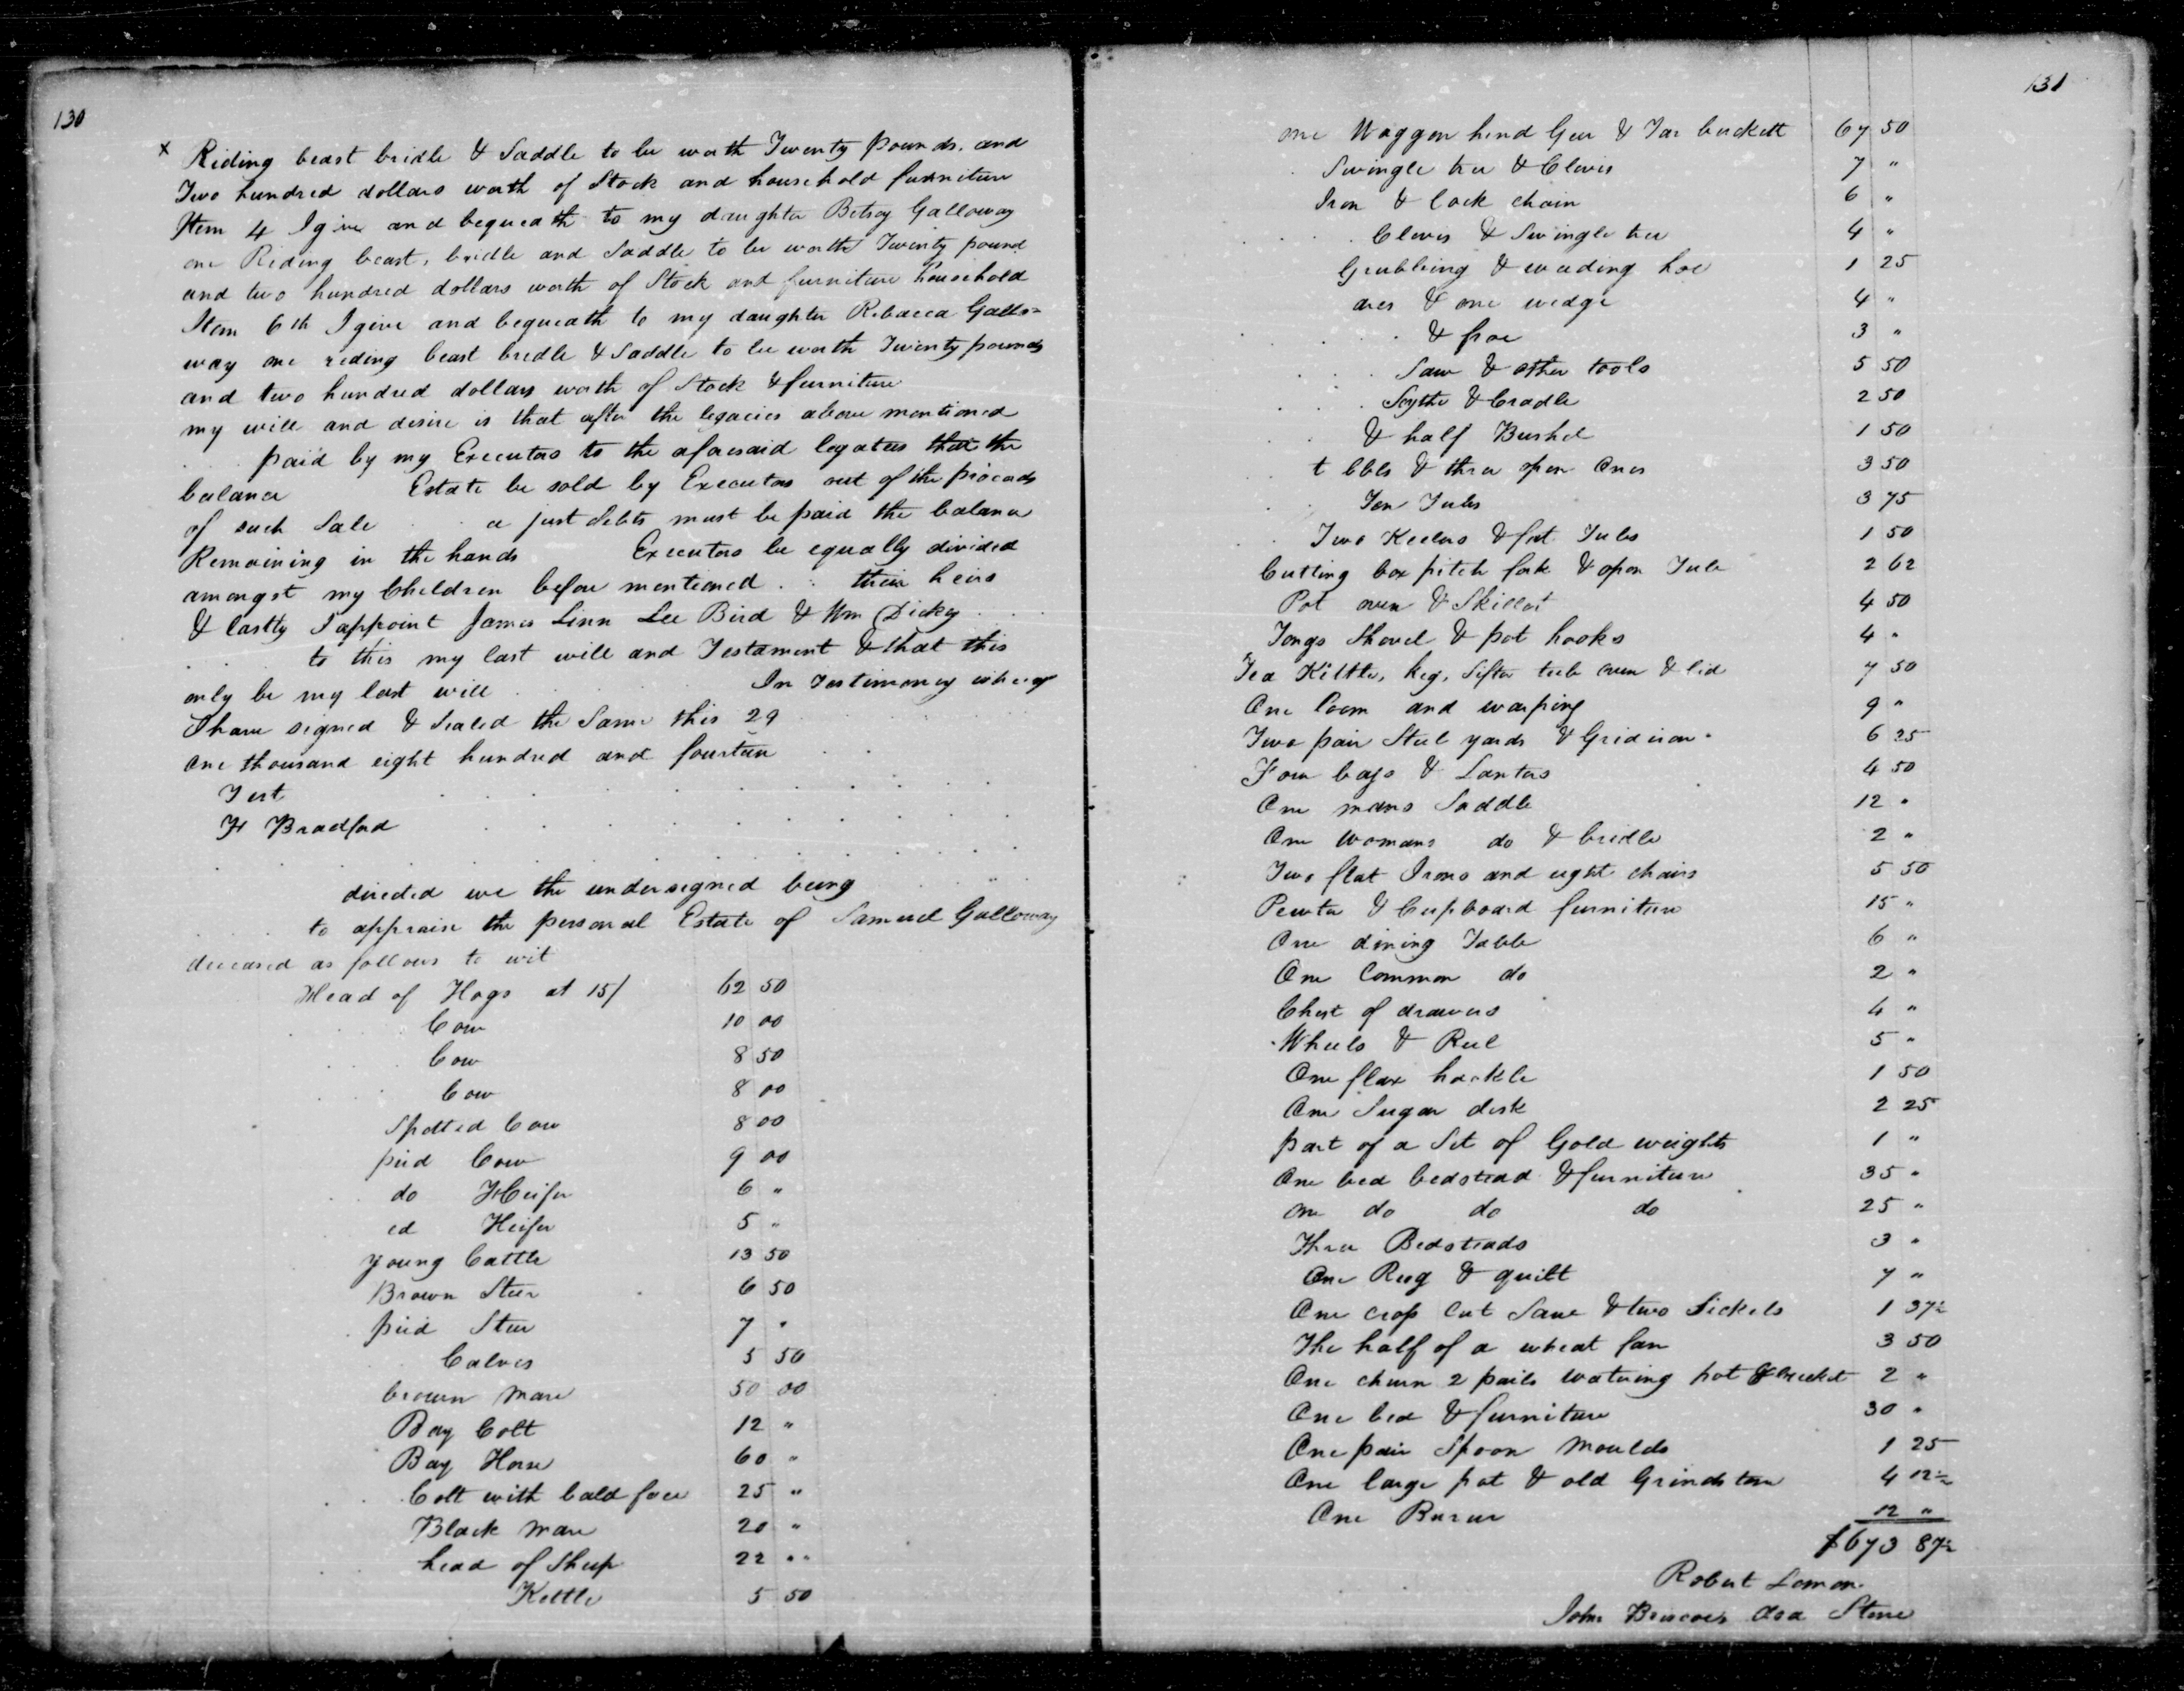 130
x Riding beast bridle & Saddle to be worth Twenty pounds. and
Two hundred dollars worth of Stock and household furniture
Item 4 I give and bequeath to my daughter Betsey Galloway
one Riding beast, bridle and Saddle to be worth Twenty pound
and two hundred dollars worth of Stock and furniture household
Item 6th I give and bequeath to my daughter Rebecca Gallo=
way one riding beast bridle & Saddle to be worth Twenty pounds
and two hundred dollars worth of Stock & furniture
my will and desire is that after the legacies above mentioned
paid by my Executors to the aforesaid legatees that the
balance Estate be sold by Executors out of the proceeds
of such Sale a just debts must be paid the balance
Remaining in the hands Executors be equally divided
amongst my Children before mentioned their heirs
& lastly I appoint James Linn Lee Bird & Wm Dickey
to this my last will and Testament & that this
only be my last will In Testimony whereof
I have signed & Sealed the Same this 29
one thousand eight hundred and fourteen
Test
H Bradford
directed we the undersigned being
to appraise the personal Estate of Samuel Galloway
deceased as follows to wit
Head of Hogs at 15/ 62 50
Cow 10 00
Cow 8 50
Cow 8 00
Spotted Cow 8 00
pied Cow 9 00
do Heifer 6 "
ed Heifer 5 "
young Cattle 13 50
Brown Steer 6 50
pied Steer 7 "
Calves 5 50
brown Mare 50 00
Bay Colt 12 "
Bay Horse 60 "
Colt with bald face 25 "
Black Mare 20 "
head of Sheep 22 "
Kettle 5 50
131
one Waggon hind Gear & Tar buckett 67 50
Swingle tree & Clevis 7 "
Iron & lock chain 6 "
Clevis & Swingle tree 4 "
Grubbing & weeding hoe 1 25
axes & one wedge 4 "
& froe 3 "
Saw & other tools 5 50
Scythe & Cradle 2 50
& half Bushel 1 50
t bbls & three open Ones 3 50
Ten Tubs 3 75
Two Keelers & fat Tubs 1 50
Cutting box pitch fork & open Tub 2 62
Pot oven & Skillet 4 50
Tongs Shovel & pot hooks 4 "
Tea Kettle, keg, Sifter tub oven & lid 7 50
One loom and warping 9 "
Two pair Steel yards & Gridiron 6 25
Four bags & Lantes 4 50
One mans Saddle 12 "
One Womans do & bridle 2 "
Two flat Irons and eight chairs 5 50
Pewter & Cupboard furniture 15 "
One dining Table 6 "
One Common do 2 "
Chest of drawers 4 "
Wheels & Reel 5 "
One flax hackle 1 50
One Sugar desk 2 25
part of a Set of Gold weights 1 "
One bed bedstead & furniture 35 "
One do do do 25 "
Three Bedsteads 3 "
One Rug & quilt 7 "
One crop Cut Saw & two Sickels 1 37½
The half of a wheat fan 3 50
One churn 2 pails watering pot & bucket 2 "
One bed & furniture 30 "
One pair Spoon Moulds 1 25
One large pot & old Grindstone 4 12½
One Bureau 12 "
$673 87½
Robert Lemon
John Briscoes Asa Stone